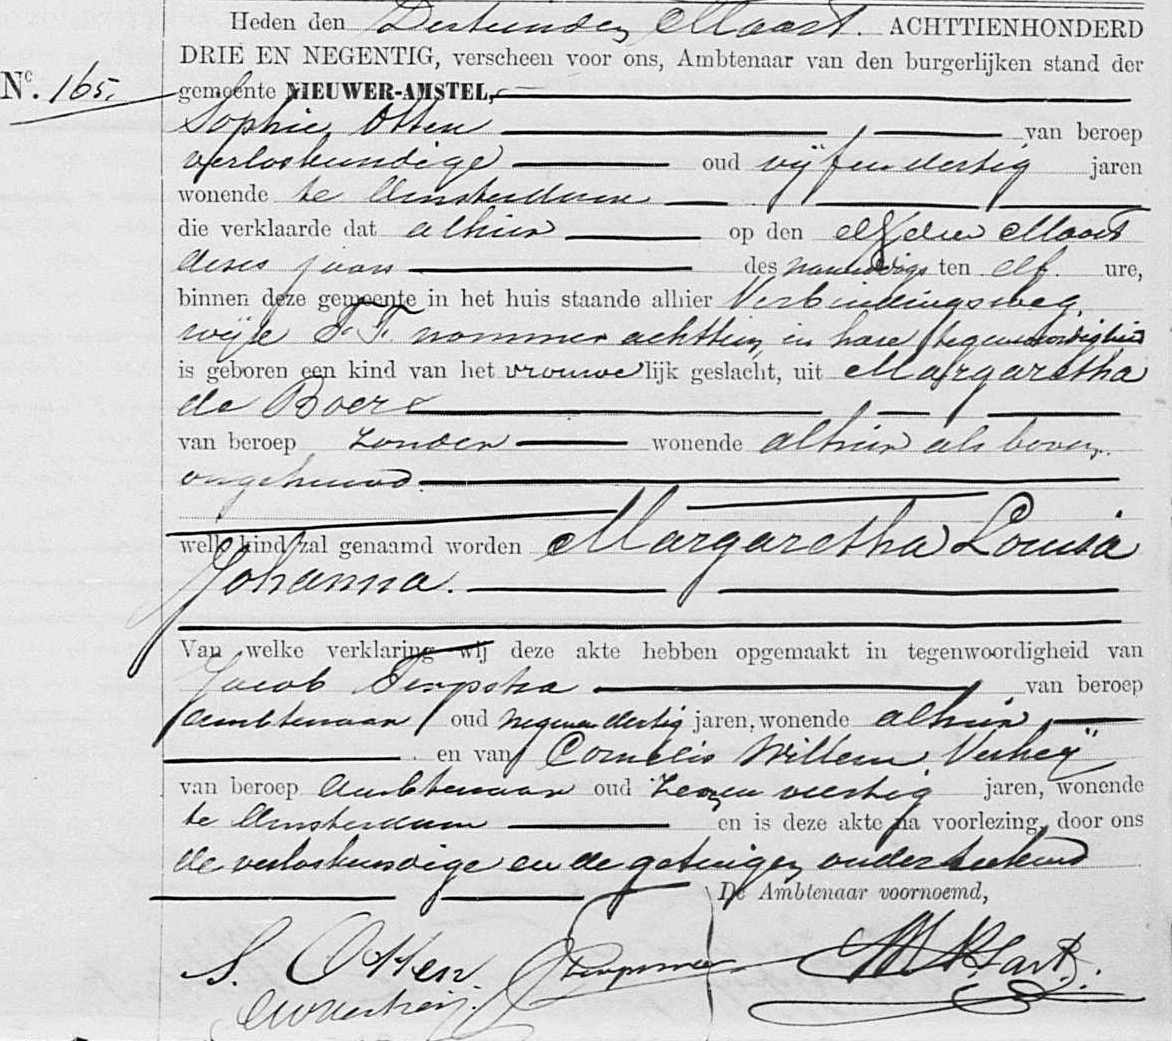 Heden den Dertienden Maart. ACHTTIENHONDERD
DRIE EN NEGENTIG, verscheen voor ons, Ambtenaar van den burgerlijken stand der
Nº. 165. gemeente NIEUWER-AMSTEL,
Sophie Otten van beroep
verloskundige oud vijfendertig jaren
wonende te Amsterdam
die verklaarde dat alhier op den elfden Maart
dezes jaars des namiddags ten elf ure,
binnen deze gemeente in het huis staande alhier Verbindingsweg
wijk F.F. nommer achttien, in hare tegenwoordigheid
is geboren een kind van het vrouwelijk geslacht, uit Margaretha
de Boer
van beroep zonder wonende alhier als boven
ongehuwd.
welk kind zal genaamd worden Margaretha Louisa
Johanna.
Van welke verklaring wij deze akte hebben opgemaakt in tegenwoordigheid van
Jacob Terpstra van beroep
ambtenaar oud negenendertig jaren, wonende alhier,
en van Cornelis Willem Verheij
van beroep ambtenaar oud zesenveertig jaren, wonende
te Amsterdam en is deze akte na voorlezing, door ons
de verloskundige en de getuigen onderteekend
De Ambtenaar voornoemd,
S. Otten.
CWVerheij.